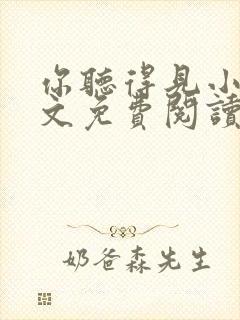 你聽得見小
文免費閱讀
奶爸森先生